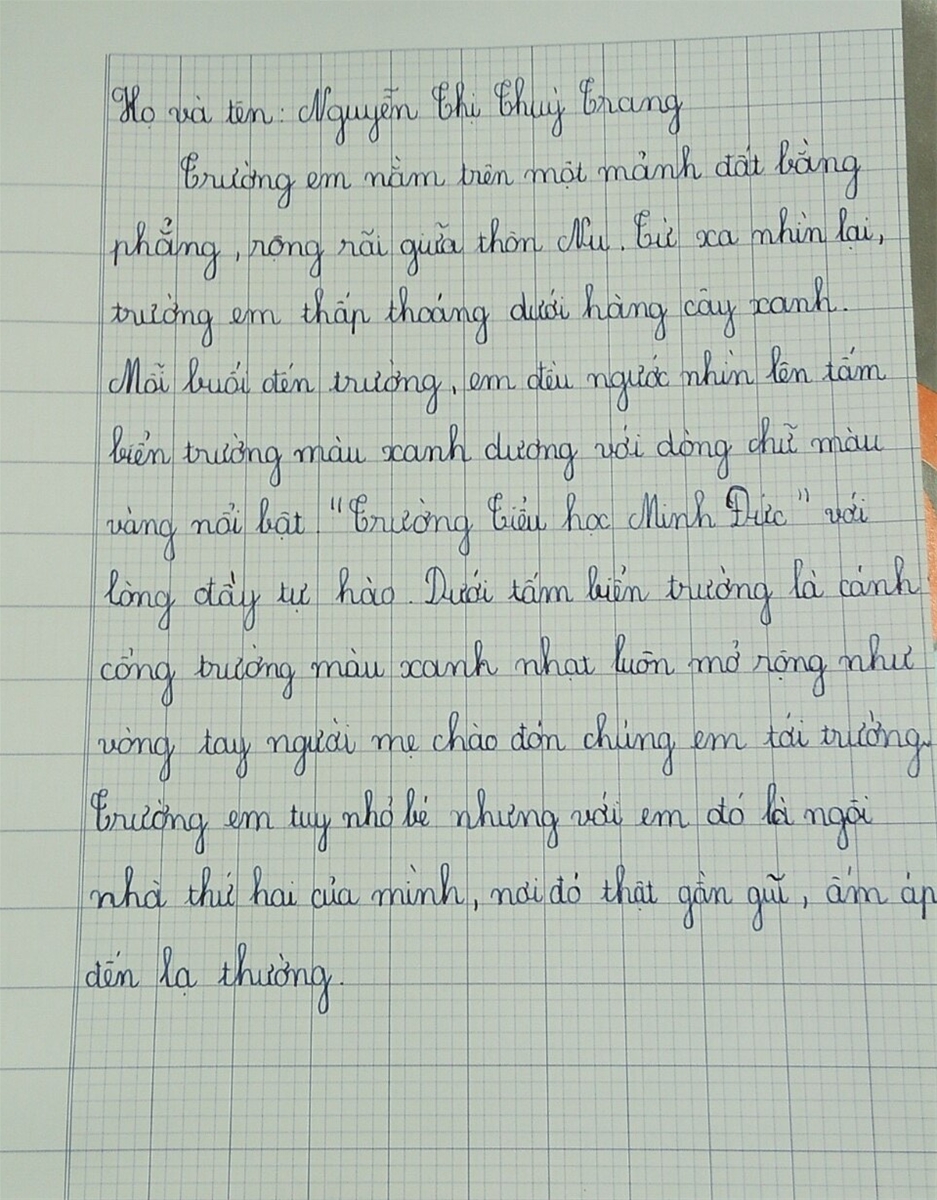 Họ và tên: Nguyễn Thị Thuỳ Trang
Trường em nằm trên một mảnh đất bằng
phẳng, rộng rãi giữa thôn Nu. Từ xa nhìn lại,
trường em thấp thoáng dưới hàng cây xanh.
Mỗi buổi đến trường, em đều ngước nhìn lên tấm
biển trường màu xanh dương với dòng chữ màu
vàng nổi bật "Trường Tiểu học Minh Đức" với
lòng đầy tự hào. Dưới tấm biển trường là cánh
cổng trường màu xanh nhạt luôn mở rộng như
vòng tay người mẹ chào đón chúng em tới trường.
Trường em tuy nhỏ bé nhưng với em đó là ngôi
nhà thứ hai của mình, nơi đó thật gần gũi, ấm áp
đến lạ thường.